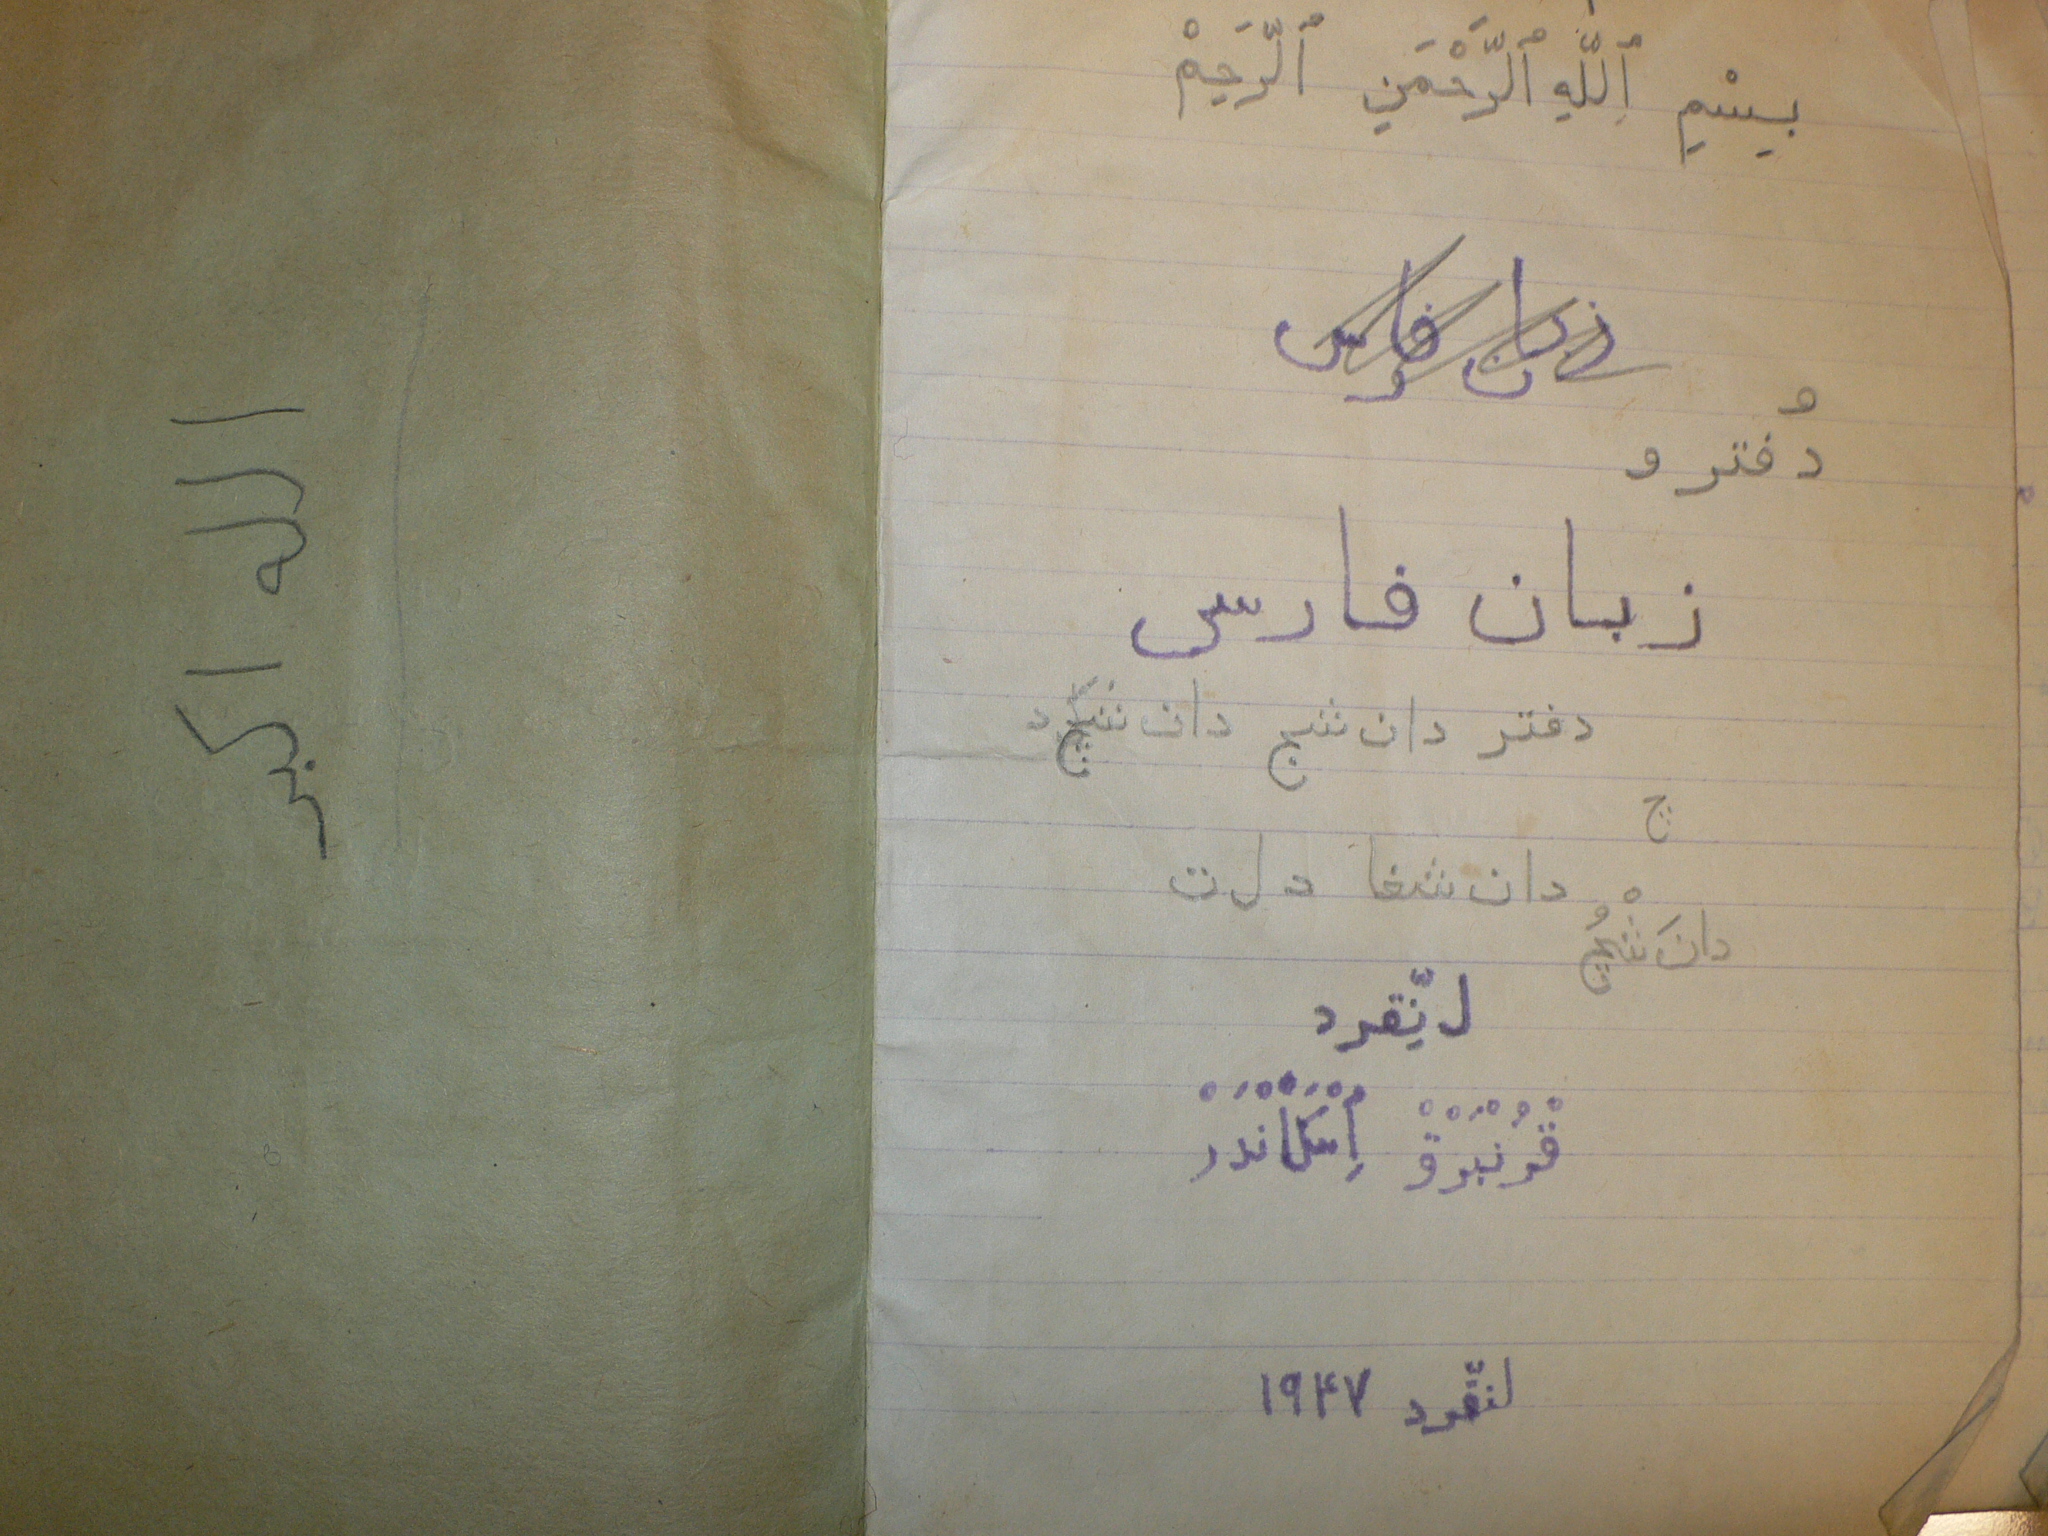 الله اكبر
بِسْمِ اَللَّهِ اَلرَّحْمَنِ اَلرَّحِيمْ
زبان فارس
و
دفتر و
زبان فارس
دفتر دان شج دان شچد
چ
دان شغا دلت
دانَ شْچُ
لنّقرد
قْرُنْبَرْقْ اِسْكَانْدَرْ
لنّقرد ۱۹۴۷